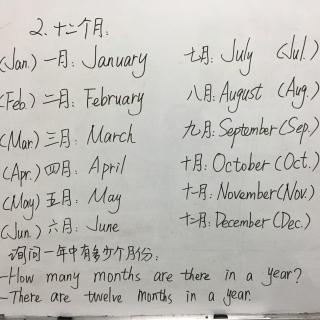 2.十二个月:
(Jan.) 一月: January
(Feb.) 二月: February
(Mar.) 三月: March
(Apr.) 四月: April
(May) 五月: May
(Jun.) 六月: June
七月: July (Jul.)
八月: August (Aug.)
九月: September (Sep.)
十月: October (Oct.)
十一月: November (Nov.)
十二月: December (Dec.)
询问一年中有多少个月份:
-How many months are there in a year?
-There are twelve months in a year.